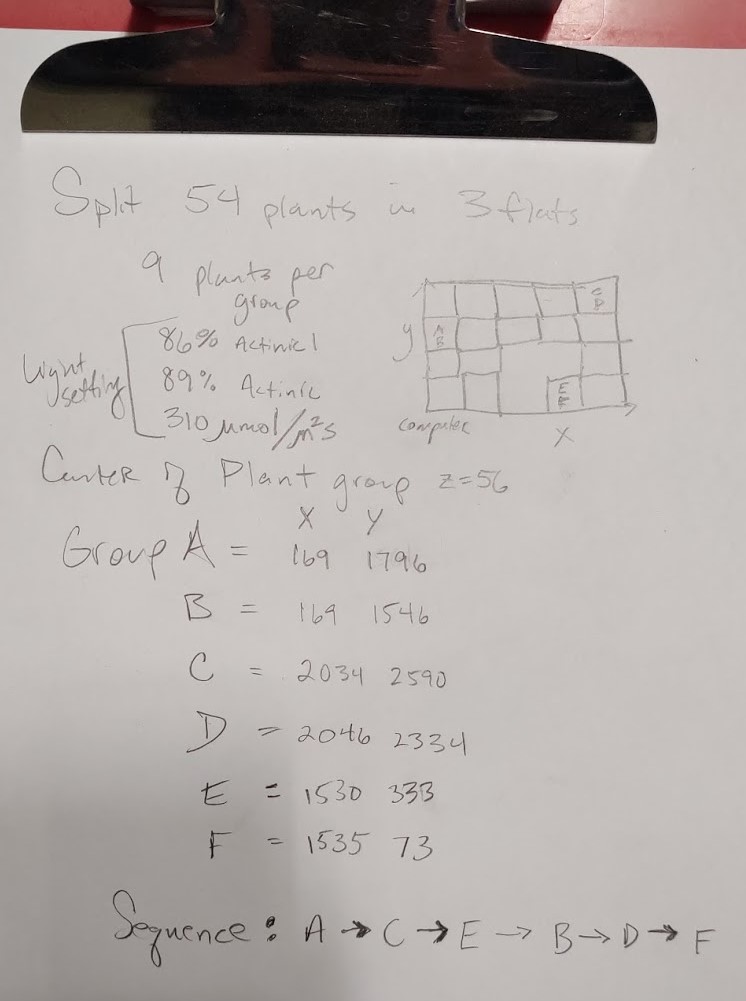 Split 54 plants in 3 flats
9 plants per
group
Light
setting
86% Actinic 1
89% Actinic
310 µmol/m²s
y
C
D
A
B
E
F
computer
X
Center of Plant group z=56
X Y
Group A = 169 1796
B = 169 1546
C = 2034 2590
D = 2046 2334
E = 1530 333
F = 1535 73
Sequence: A → C → E → B → D → F